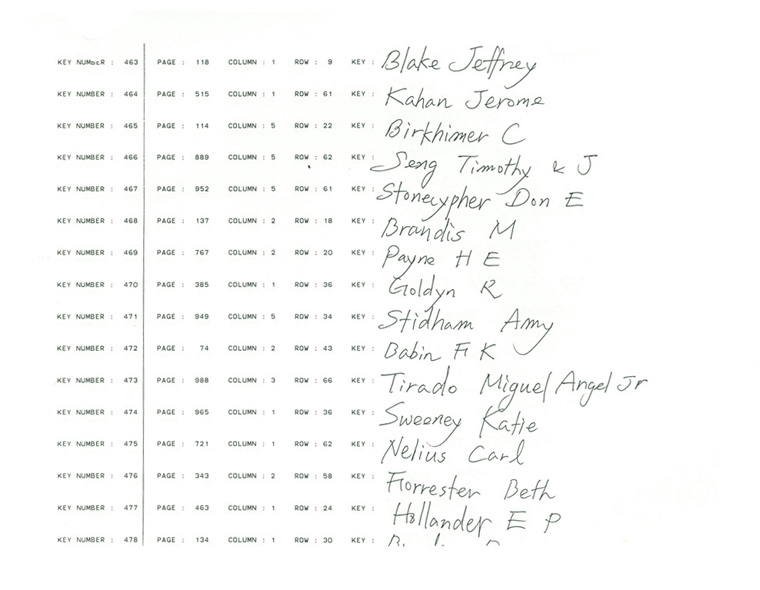 KEY NUMBER : 463 PAGE : 118 COLUMN : 1 ROW : 9 KEY : Blake Jeffrey
KEY NUMBER : 464 PAGE : 515 COLUMN : 1 ROW : 61 KEY : Kahan Jerome
KEY NUMBER : 465 PAGE : 114 COLUMN : 5 ROW : 22 KEY : Birkhimer C
KEY NUMBER : 466 PAGE : 889 COLUMN : 5 ROW : 62 KEY : Seng Timothy & J
KEY NUMBER : 467 PAGE : 952 COLUMN : 5 ROW : 61 KEY : Stonecypher Don E
KEY NUMBER : 468 PAGE : 137 COLUMN : 2 ROW : 18 KEY : Brandis M
KEY NUMBER : 469 PAGE : 767 COLUMN : 2 ROW : 20 KEY : Payne H E
KEY NUMBER : 470 PAGE : 385 COLUMN : 1 ROW : 36 KEY : Goldyn R
KEY NUMBER : 471 PAGE : 949 COLUMN : 5 ROW : 34 KEY : Stidham Amy
KEY NUMBER : 472 PAGE : 74 COLUMN : 2 ROW : 43 KEY : Babin K
KEY NUMBER : 473 PAGE : 988 COLUMN : 3 ROW : 66 KEY : Tirado Miguel Angel Jr
KEY NUMBER : 474 PAGE : 965 COLUMN : 1 ROW : 36 KEY : Sweeney Katie
KEY NUMBER : 475 PAGE : 721 COLUMN : 1 ROW : 62 KEY : Nelius Carl
KEY NUMBER : 476 PAGE : 343 COLUMN : 2 ROW : 58 KEY : Forrester Beth
KEY NUMBER : 477 PAGE : 463 COLUMN : 1 ROW : 24 KEY : Hollander E P
KEY NUMBER : 478 PAGE : 134 COLUMN : 1 ROW : 30 KEY :